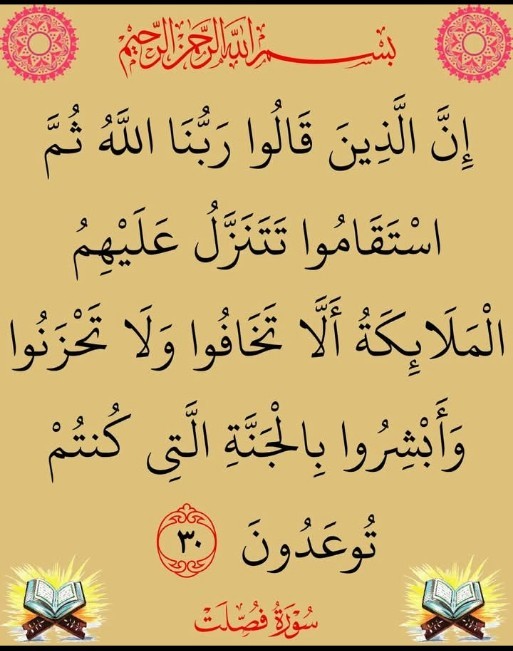 بسم الله الرحمن الرحيم
إِنَّ الَّذِينَ قَالُوا رَبُّنَا اللَّهُ ثُمَّ
اسْتَقَامُوا تَتَنَزَّلُ عَلَيْهِمُ
الْمَلَائِكَةُ أَلَّا تَخَافُوا وَلَا تَحْزَنُوا
وَأَبْشِرُوا بِالْجَنَّةِ الَّتِي كُنتُمْ
تُوعَدُونَ ٣٠
سُورَةُ فُصِّلَتْ